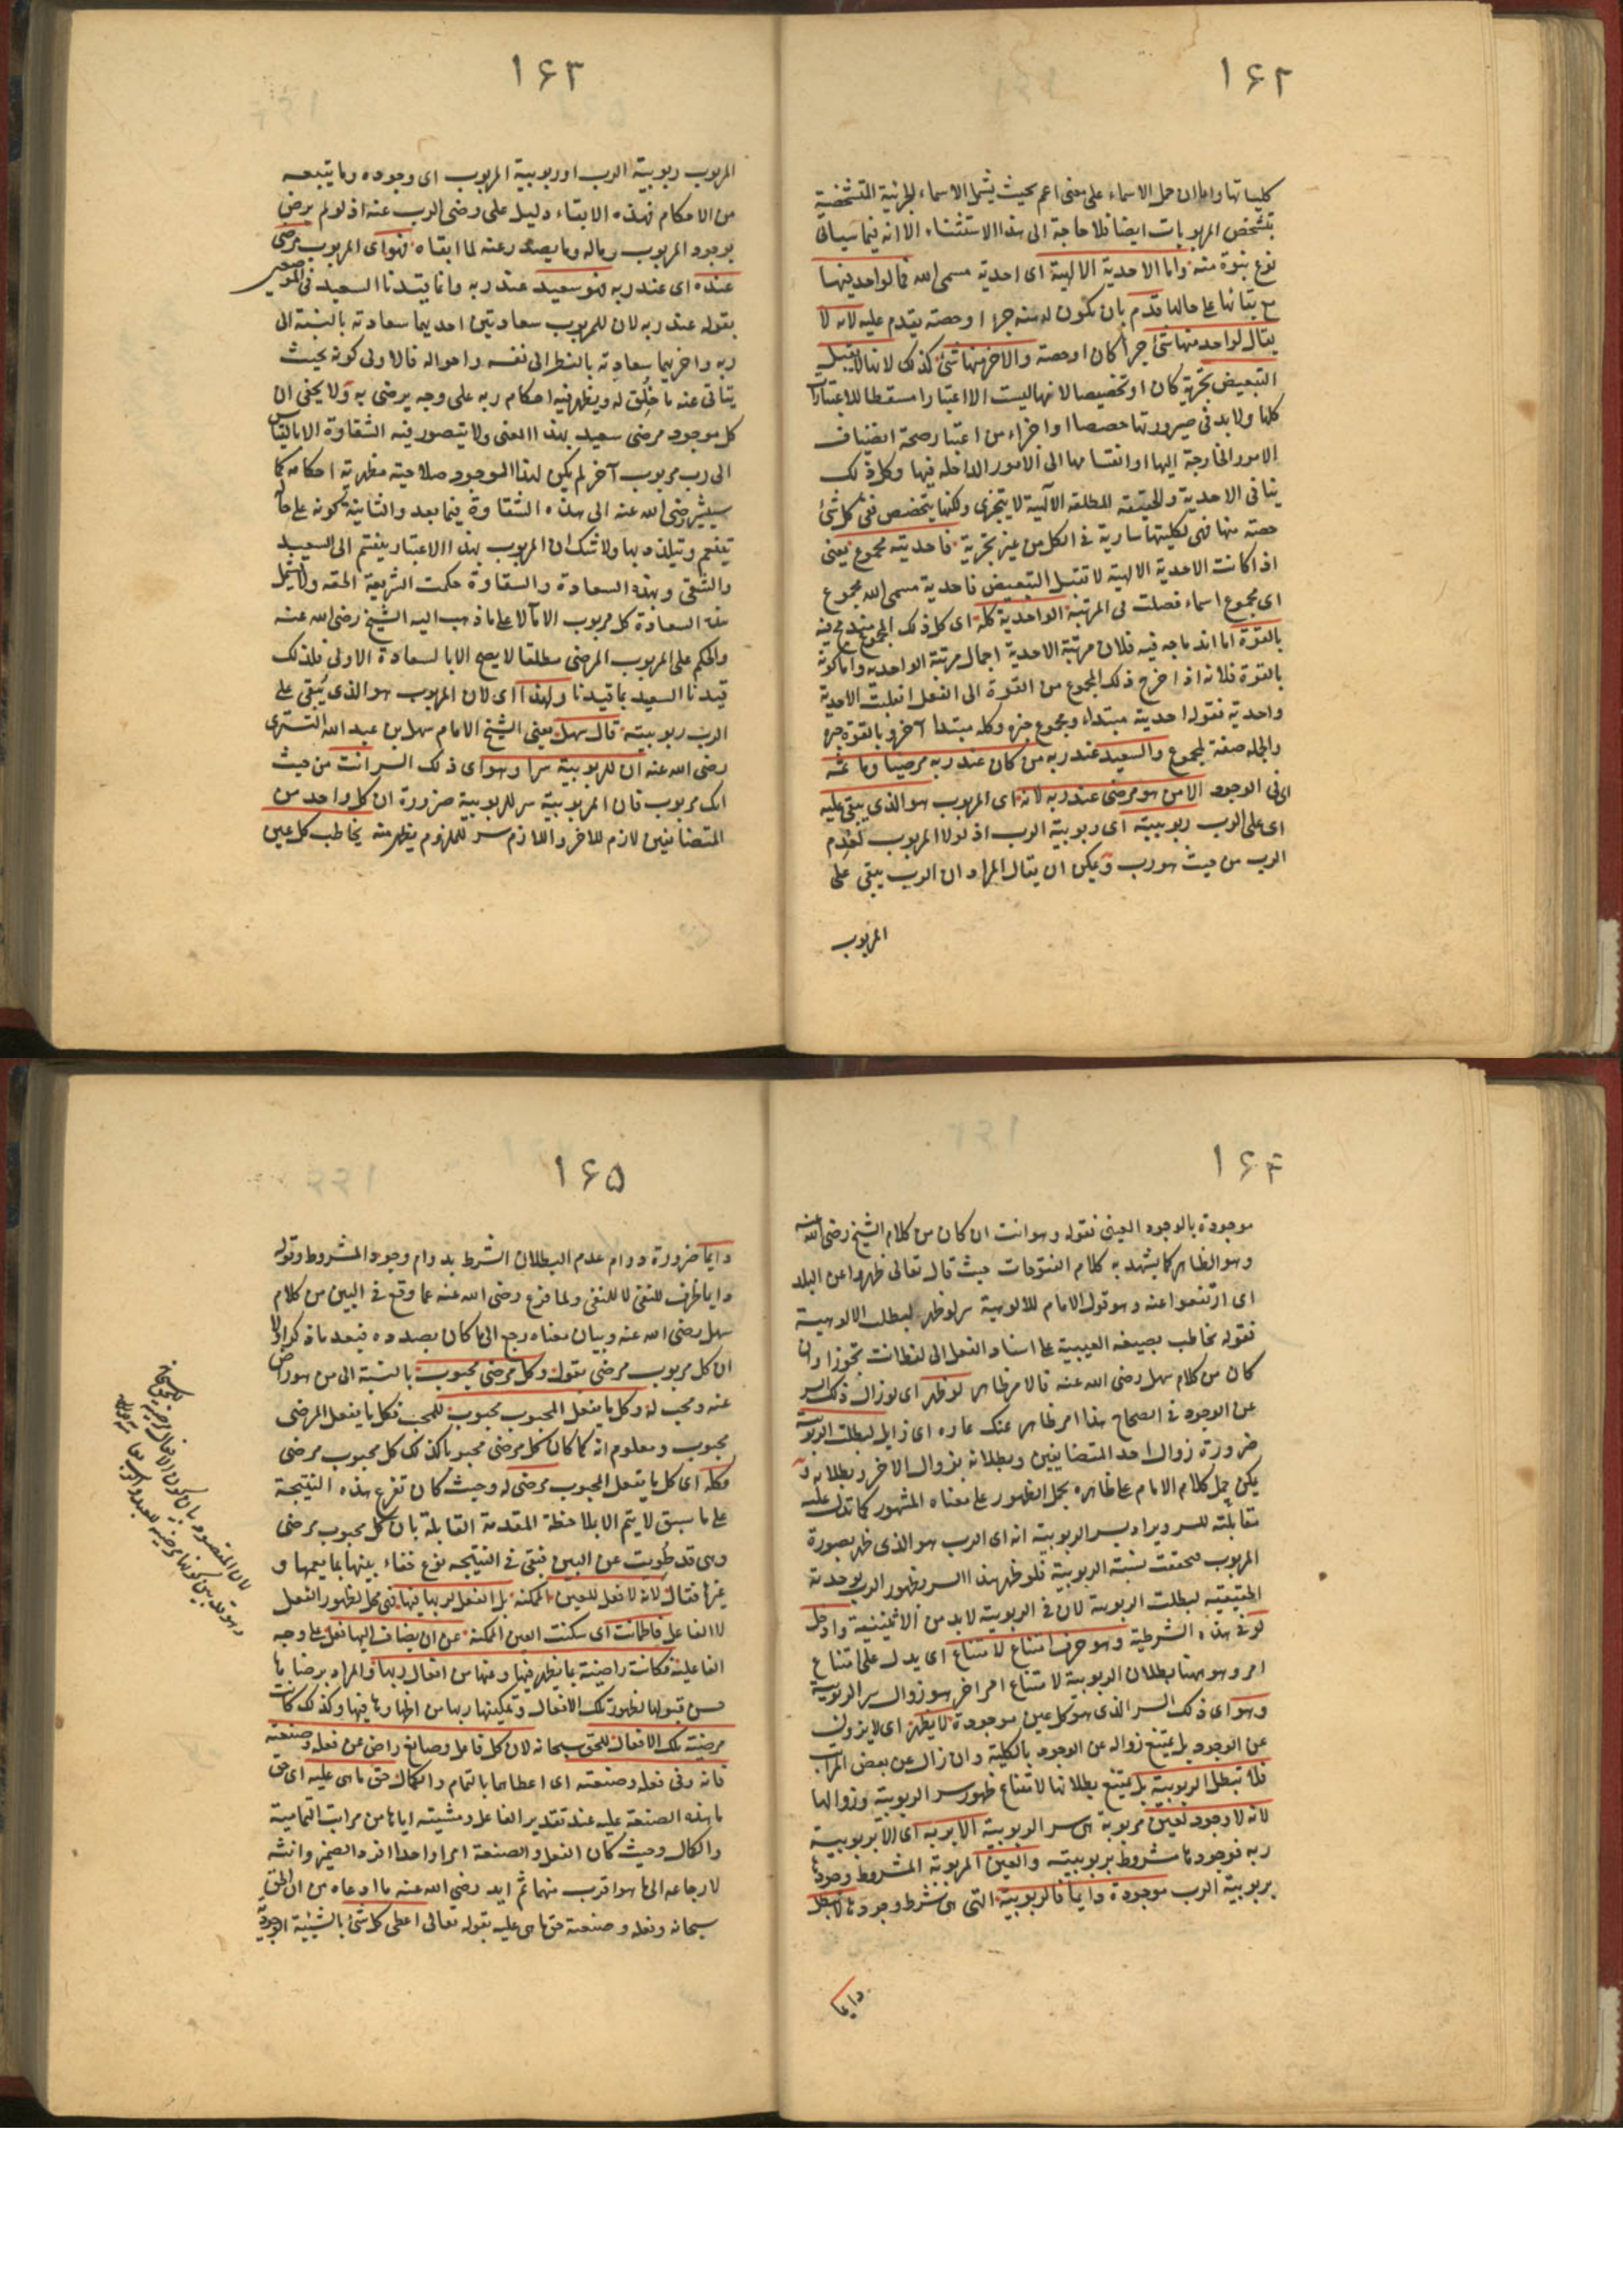 ١۶٢
كلياتها واما ان حمل الاسماء على معنى اعم بحيث يشمل الاسماء الجزئية المتشخصة
بتشخص المربوبات ايضا فلا حاجة الى هذا الاستثناء الا انه فيما سيأتى
نوع نبوة منه واما الاحدية الالهية اى احدية مسمى الله فما لواحد فيها
مع بقائها على حالها قدم بان يكون له منه جزء او حصته يقدم عليه لانه لا
يقال لواحد منها شئ جزأ كان او حصته والآخر منها شئ كذلك لانها لا تقبل
التبعيض تجزية كان او تخصيصا لانها ليست الا اعتبارا مسقطا للاعتبارات
كلها ولا بد فى صيرورتها حصصا او اجزاء من اعتبار صحة انضياف
الامور الخارجة اليها او انقسامها الى الامور الداخلة فيها وكل ذلك
ينافى الاحدية والحقيقة المطلقة الالهية لا يتجزى ولكنها يتحصص ففى كل شئ
حصته منها فهى بكليتها سارية فى الكل من غير تجزية فاحديته مجموع يعنى
اذا كانت الاحدية الالهية لا تقبل التبعيض فاحدية مسمى الله مجموع
اى مجموع اسماء فصلت فى المرتبة الواحدية كله اى كل ذلك المجموع مندمج فيه
بالقوة اما اندماجه فيه فلان مرتبة الاحدية اجمال مرتبة الواحدية واما كونه
بالقوة فلانه اذا خرج ذلك المجموع من القوة الى الفعل انقلبت الاحدية
واحدية فقوله احديته مبتداء ومجموع خبره وكله مبتدا آخر وبالقوة خبره
والجملة صفة لمجموع والسعيد عند ربه من كان عند ربه مرضيا وما ثمه
اى فى الوجود الا من هو مرضى عند ربه لانه اى المربوب هو الذى يبقى عليه
اى على الرب ربوبيته اى ربوبية الرب اذ لولا المربوب لعدم
الرب من حيث هو رب ويمكن ان يقال المراد ان الرب يبقى على
المربوب
١۶٣
المربوب ربوبية الرب او ربوبية المربوب اى وجوده وما يتبعه
من الاحكام فهذه الابقاء دليل على رضى الرب عنه اذ لو لم يرض
بوجود المربوب وماله وما يصدر عنه لما ابقاه فهو اى المربوب مرضى
عنده اى عند ربه فهو سعيد عند ربه وانما قيدنا السعيد فى الموضعين
بقوله عند ربه لان للمربوب سعادتين احديهما سعادته بالنسبة الى
ربه واخريهما سعادته بالنظر الى نفسه واحواله فالاولى كونه بحيث
يتأتى عنه ما خلق له ويظهر فيه احكام ربه على وجه يرضى به ولا يخفى ان
كل موجود مرضى سعيد بهذا المعنى ولا يتصور فيه الشقاوة الا بالقياس
الى رب مربوب آخر لم يكن لهذا الموجود صلاحيته مظهرية احكامه كما
سيشير رضى الله عنه الى هذه الشقاوة فيما بعد والثانية كونه على حال
يتنعم ويتلذذ بها ولا شك ان المربوب بهذا الاعتبار ينقسم الى السعيد
والشقى وبهذه السعادة والشقاوة حكمت الشريعة الحقه ولا يشمل
هذه السعادة كل مربوب الا مآلا على ما ذهب اليه الشيخ رضى الله عنه
والحكم على المربوب المرضى مطلقا لا يصح الا بالسعادة الاولى فلذلك
قيدنا السعيد بما قيدنا ولهذا اى لان المربوب هو الذى يبقى على
الرب ربوبيته قال سهل يعنى الشيخ الامام سهل بن عبد الله التسترى
رضى الله عنه ان للربوبية سرا وهو اى ذلك السر انت من حيث
انك مربوب فان المربوبية سر للربوبية ضرورة ان كل واحد من
المتضائفين لازم للآخر واللازم سر للملزوم يظهر منه يخاطب كل عين
١۶۴
موجودة بالوجود العينى فقوله وهو انت ان كان من كلام الشيخ رضى الله عنه
وهو الظاهر كما يشهد به كلام الفتوحات حيث قال تعالى ظهروا عن البلد
اى ارتفعوا عنه وهو قول الامام للالوهية سر لو ظهر لبطلت الالوهية
فقوله يخاطب بصيغة الغيبة على اسناد الفعل الى لفظ انت تجوزا وان
كان من كلام سهل رضى الله عنه فالامر ظاهر لو ظهر اى لو زال ذلك السر
عن الوجود فى الصحاح هذا امر ظاهر عنك عاره اى زايل لبطلت الربوبية
ضرورة زوال احد المتضايفين وبطلانه بزوال الآخر وبطلانه و
يمكن حمل كلام الامام على ظاهره بحمل الظهور على معناه المشهور كما تدل عليه
مقابلته للسر ويراد بسر الربوبية انه اى الرب هو الذى ظهر بصورة
المربوب فتحققت نسبة الربوبية فلو ظهر هذا السر وظهور الرب بوحدته
الحقيقية لبطلت الربوبية لان فى الربوبية لا بد من الاثنينية وادخل
لو فى هذه الشرطية وهو حرف امتناع لامتناع اى يدل على امتناع
امر وهو ههنا بطلان الربوبية لامتناع امر آخر هو زوال سر الربوبية
وهو اى ذلك السر الذى هو كل عين موجودة لا يظهر اى لا يزول
عن الوجود بل يمتنع زواله عن الوجود بالكلية وان زال عن بعض المراتب
فلا تبطل الربوبية بل يمتنع بطلانها لامتناع ظهور سر الربوبية وزوالها
لانه لا وجود لعين مربوبة هى سر الربوبية الا بربه اى الا بربوبية
ربه فوجودها مشروط بربوبيته والعين المربوبة المشروط وجودها
بربوبية الرب موجودة دايما فالربوبية التى هى شرط وجودها لا تبطل
دايما
١۶۵
دايما ضرورة دوام عدم البطلان الشرط بدوام وجود المشروط وقوله
دايما ظرف للنفى لا للمنفى ولما فرغ رضى الله عنه عما وقع فى البين من كلام
سهل رضى الله عنه وبيان معناه رجع الى ما كان بصدده فبعد ما ذكر اولا
ان كل مربوب مرضى بقوله وكل مرضى محبوب بالنسبة الى من هو راض
عنه ومحب له وكل ما يفعل المحبوب محبوب للمحب فكل ما يفعل المرضى
محبوب ومعلوم انه كما كان كل مرضى محبوبا كذلك كل محبوب مرضى
فكله اى كل ما يفعل المحبوب مرضى له وحيث كان تفرع هذه النتيجة
على ما سبق لا يتم الا بملاحظة المقدمة القابلة بان كل محبوب مرضى
وهى قد طويت عن البين فبقى فى النتيجه نوع خفاء بينها بما يعمها و
غيرها فقال لانه لا فعل للعين الممكنة بل الفعل لربها فيها فهى محل لظهور الفعل
لا الفاعل فاطمانت اى سكنت العين الممكنة عن ان يضاف اليها فعل على وجه
الفاعلية فكانت راضية بما يظهر فيها وعنها من افعال ربها والمراد برضاها
حسن قبولها لظهور تلك الافعال وتمكينها ربها من اظهارها فيها وكذلك كانت
مرضية تلك الافعال للحق سبحانه لان كل فاعل وصانع راض عن فعله وصنعته
فانه وفى فعله وصنعته اى اعطاهما بالتمام والكمال حق ما هى عليه اى حق
ما هذه الصنعة عليه عند تقدير الفاعل ومشيته اياها من مراتب التمامية
والكمال وحيث كان الفعل والصنعة امرا واحدا افرد الضمير وانثه
لارجاعه الى ما هو اقرب منهما ثم ايد رضى الله عنه ما ادعاه من ان الحق
سبحانه وفعله وصنعته حق ما هى عليه بقوله تعالى اعطى كل شئ بالشيئية الوجودية